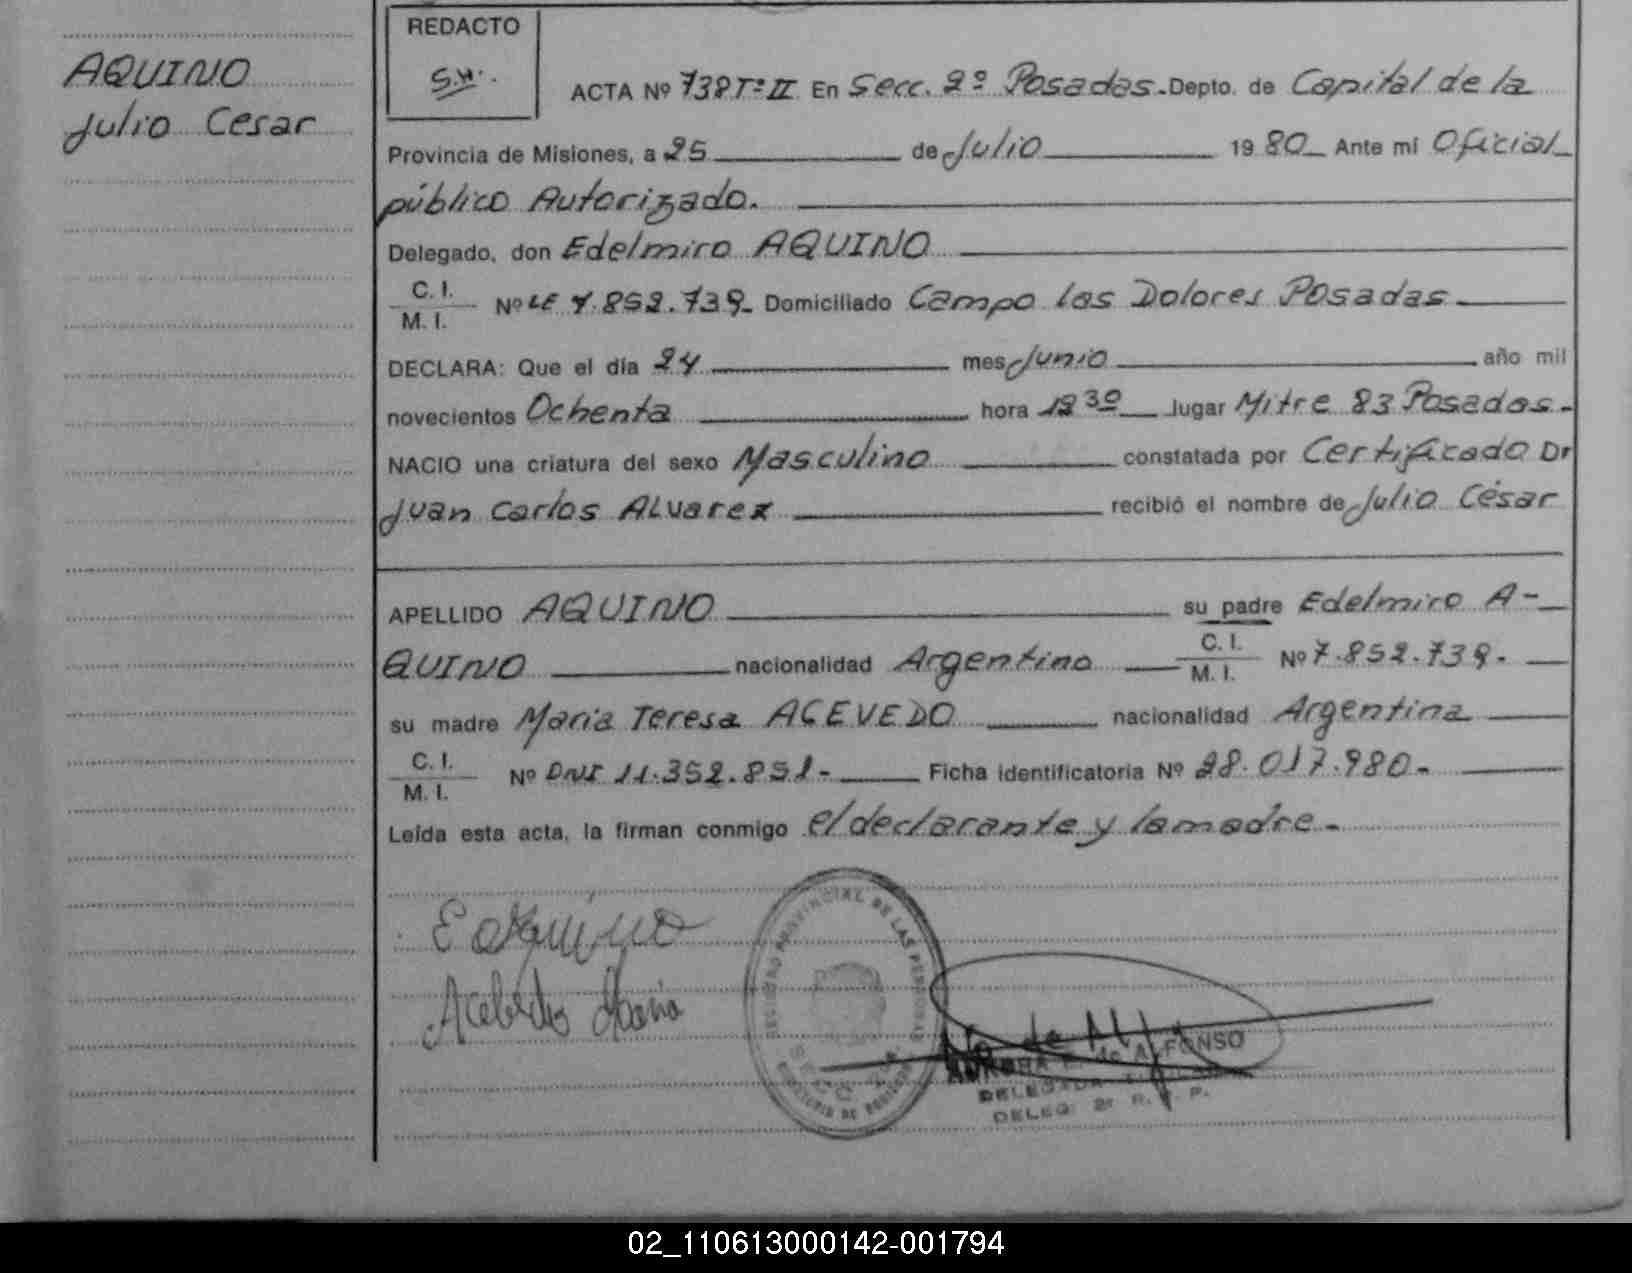 AQUINO
Julio Cesar
REDACTO
S.H.
ACTA Nº 738 Tº II En Secc. 2º Posadas. Depto. de Capital de la
Provincia de Misiones, a 25 de Julio 1980 Ante mi Oficial
público Autorizado.
Delegado, don Edelmiro AQUINO
C. I.
M. I.
Nº LE 7.852.739 Domiciliado Campo las Dolores Posadas
DECLARA: Que el día 24 mes Junio año mil
novecientos Ochenta hora lugar Mitre 83 Posadas.
NACIO una criatura del sexo Masculino constatada por Certificado Dr
Juan Carlos ALvarez recibió el nombre de Julio César
APELLIDO AQUINO su padre Edelmiro A-
QUINO nacionalidad Argentino C. I.
M. I. Nº 7.852.739.
su madre Maria Teresa ACEVEDO nacionalidad Argentina
C. I.
M. I.
Nº DNI 11.352.851- Ficha identificatoria Nº 28.017.980-
Leída esta acta, la firman conmigo el declarante y la madre-
REGISTRO PROVINCIAL DE LAS PERSONAS
E. de ALFONSO
DELEGADA TITULAR
DELEG. 2ª R. P. P.
02_110613000142-001794